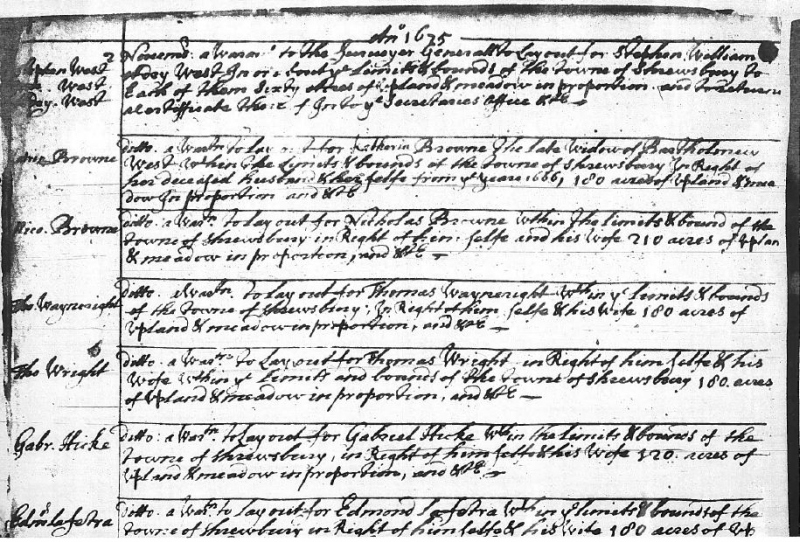 Ano 1675
Stephen West
Wm. West
Robt. West
Novemr. 2 a warrt. to the Surveyor Generall to Lay out for Stephen, William
West In or about ye Limits & bounds of the towne of Shrewsbury to
Each of them Sixty acres of upland & meadow in proportion. and to return
a Certifficate thereof In to ye Secretaries Office &c
Browne
ditto. a Warrn to lay out for Katherin Browne The late Widow of Bartholomew
West wthin the limits & bounds of the towne of Shrewsbury In Right of
her deceased husband & her selfe from ye yeare 1666, 180 acres of upland & mea
dow In proportion and &c
Nico. Browne
ditto. a Warrn. to lay out for Nicholas Browne wthin the limits & bound of the
towne of Shrewsbury in Right of him selfe and his Wife 210 acres of uplan
& meadow in proportion, and &c
Tho Waynewright
ditto. a Warrn. to lay out for Thomas Waynewright Wth in ye limits & bounds
of the towne of Shrewsbury; In Right of him selfe & his wife 180 acres of
upland & meadow in proportion, and &c
Tho Wright
ditto. a Warrn to Lay out for Thomas Wright in Right of him selfe & his
Wife Wthin ye limits and bounds of the towne of Shrewsbury 180. acres
of upland & meadow in proportion, and &c
Gabr. Hicke
ditto. a Warrn. to lay out for Gabriel Hicke Wth in the limits & bounds of the
towne of Shrewsbury, in Right of him selfe & his Wife 120. acres of
upland & meadow in proportion, and &c
Edmd Lafetra
ditto a Warn. to lay out for Edmond Lafetra Wth in ye limits & bounds of the
towne of Shrewbury in Right of him selfe & his wife 180 acres of up